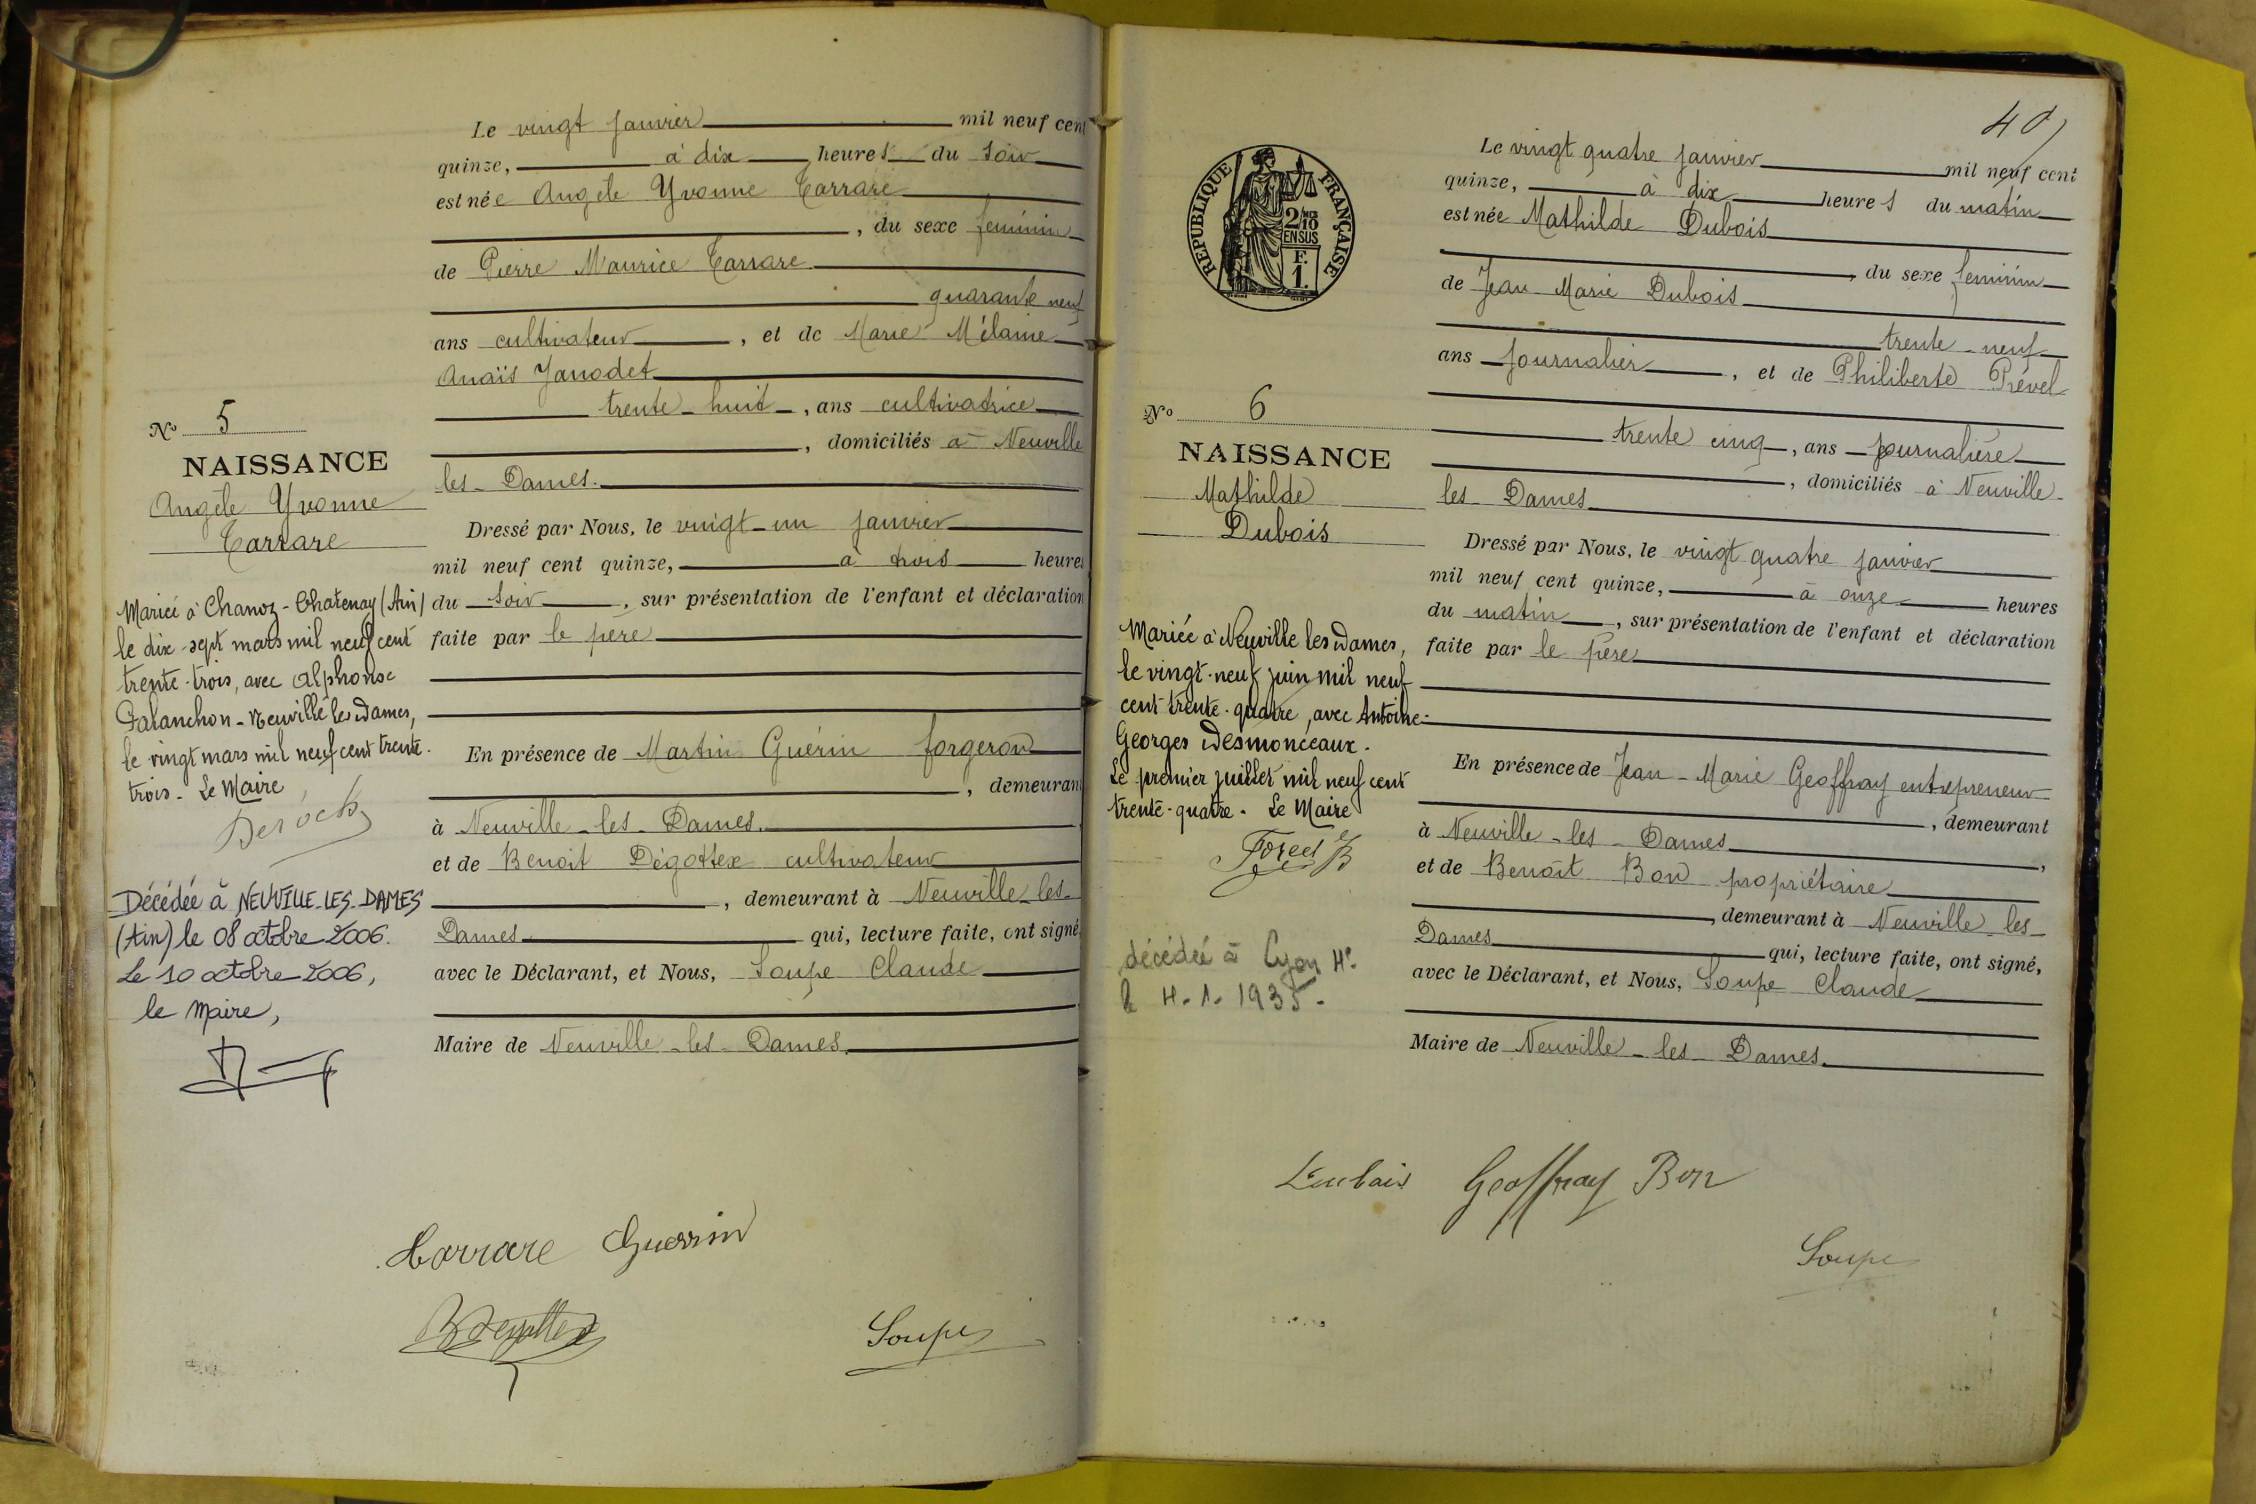 Le vingt janvier mil neuf cent
quinze, à dix heures du soir
est née Angèle Yvonne Carrare
, du sexe féminin
de Pierre Maurice Carrare
quarante neuf
ans cultivateur, et de Marie Mélanie
Anaïs Janodet
trente-huit, ans cultivatrice
, domiciliés à Neuville
les-Dames.
Dressé par Nous, le vingt-un janvier
mil neuf cent quinze, à trois heures
du soir, sur présentation de l'enfant et déclaration
faite par le père
En présence de Martin Guérin forgeron
, demeurant
à Neuville-les-Dames.
et de Benoit Dégottex cultivateur
, demeurant à Neuville-les-
Dames qui, lecture faite, ont signé
avec le Déclarant, et Nous, Soupe Claude
Maire de Neuville-les-Dames.
No 5
NAISSANCE
Angèle Yvonne
Carrare
Mariée à Chanoz-Chatenay (Ain)
le dix-sept mars mil neuf cent
trente-trois, avec Alphonse
Palanchon - Neuville les Dames,
le vingt mars mil neuf cent trente-
trois - Le Maire
Décédée à NEUVILLE-LES-DAMES
(Ain) le 08 octobre 2006.
Le 10 octobre 2006,
le Maire,
Carrare Guerrin
BDegottex
Soupe
40
RÉPUBLIQUE FRANÇAISE
2/10
EN SUS
F.
1.
Le vingt quatre janvier mil neuf cent
quinze, à dix heures du matin
est née Mathilde Dubois
, du sexe féminin
de Jean Marie Dubois
trente-neuf
ans journalier, et de Philiberte Prével
trente cinq, ans journalière
, domiciliés à Neuville-
les Dames
Dressé par Nous, le vingt quatre janvier
mil neuf cent quinze, à onze heures
du matin, sur présentation de l'enfant et déclaration
faite par le père
En présence de Jean-Marie Geoffray entrepreneur
, demeurant
à Neuville-les-Dames,
et de Benoît Bon propriétaire
, demeurant à Neuville les-
Dames qui, lecture faite, ont signé,
avec le Déclarant, et Nous, Soupe Claude
Maire de Neuville-les-Dames.
No 6
NAISSANCE
Mathilde
Dubois
Mariée à Neuville les Dames,
le vingt-neuf juin mil neuf
cent trente-quatre, avec Antoine-
Georges Desmonceaux.
Le premier juillet mil neuf cent
trente-quatre. Le Maire
décédée à Lyon 4e.
le 4.1.1935.
Dubois Geoffray Bon
Soupe